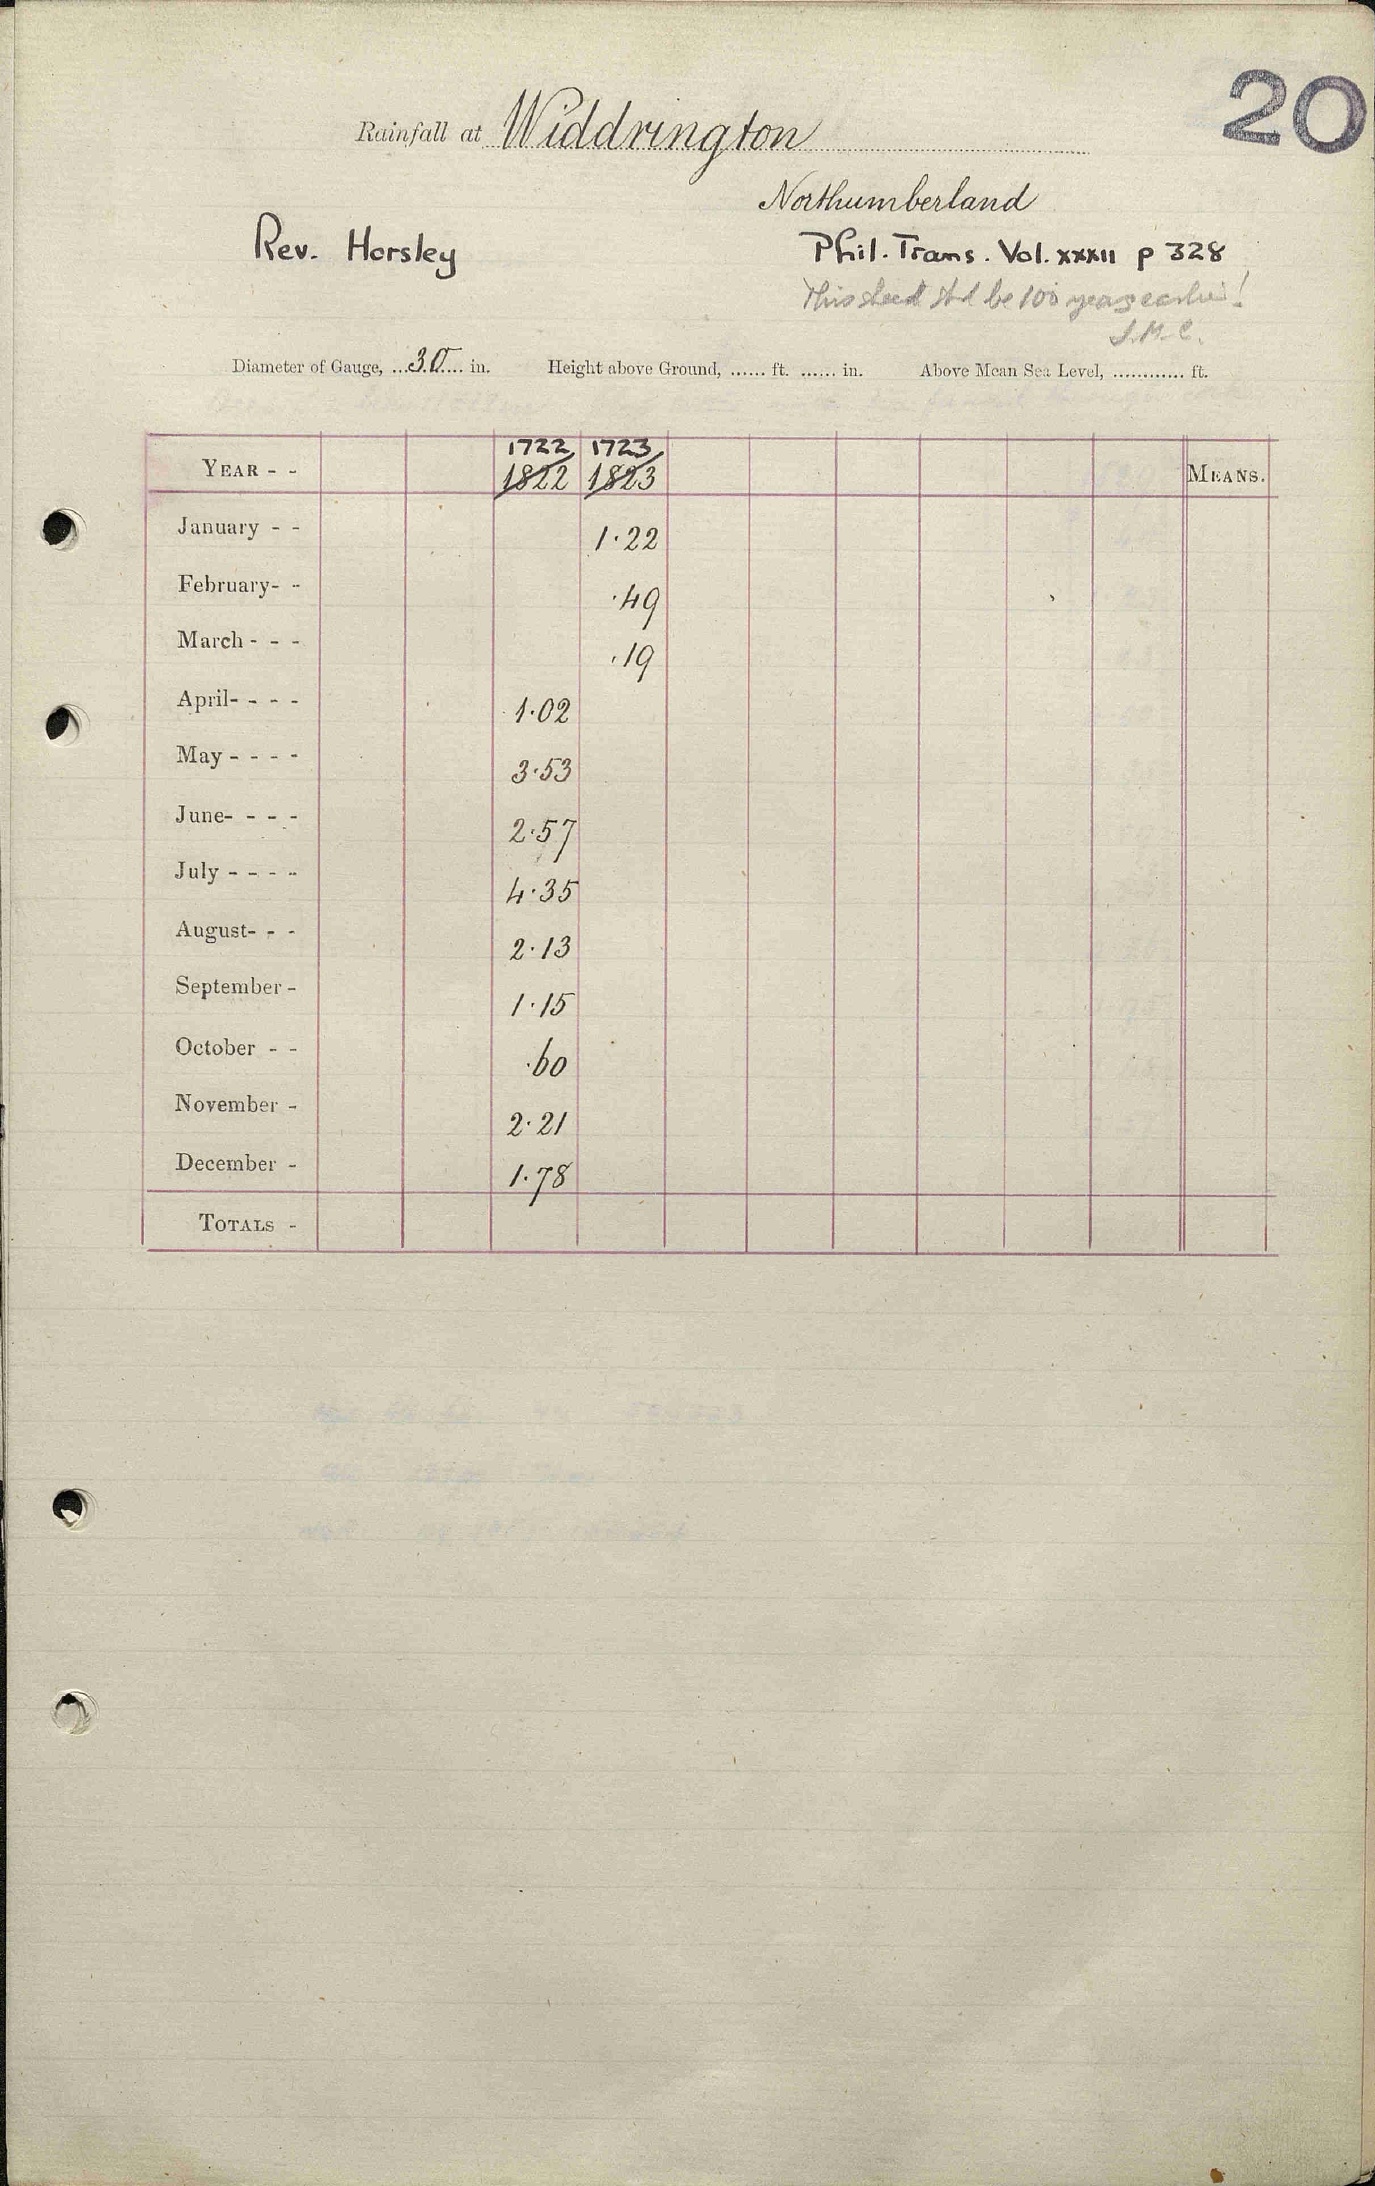 20
Rainfall at Widdrington
Northumberland
Rev. Horsley Phil. Trans. Vol. xxxii p 328
This sheet shd be 100 years earlier!
J.M.C.
Diameter of Gauge, ...30... in. Height above Ground, ...... ft. ...... in. Above Mean Sea Level, ............ ft.
1722 1723
YEAR - - 1822 1823 MEANS.
January - - 1.22
February- - .49
March - - - .19
April- - - - 1.02
May - - - - 3.53
June- - - - 2.57
July - - - - 4.35
August- - - 2.13
September - 1.15
October - - .60
November - 2.21
December - 1.78
TOTALS -